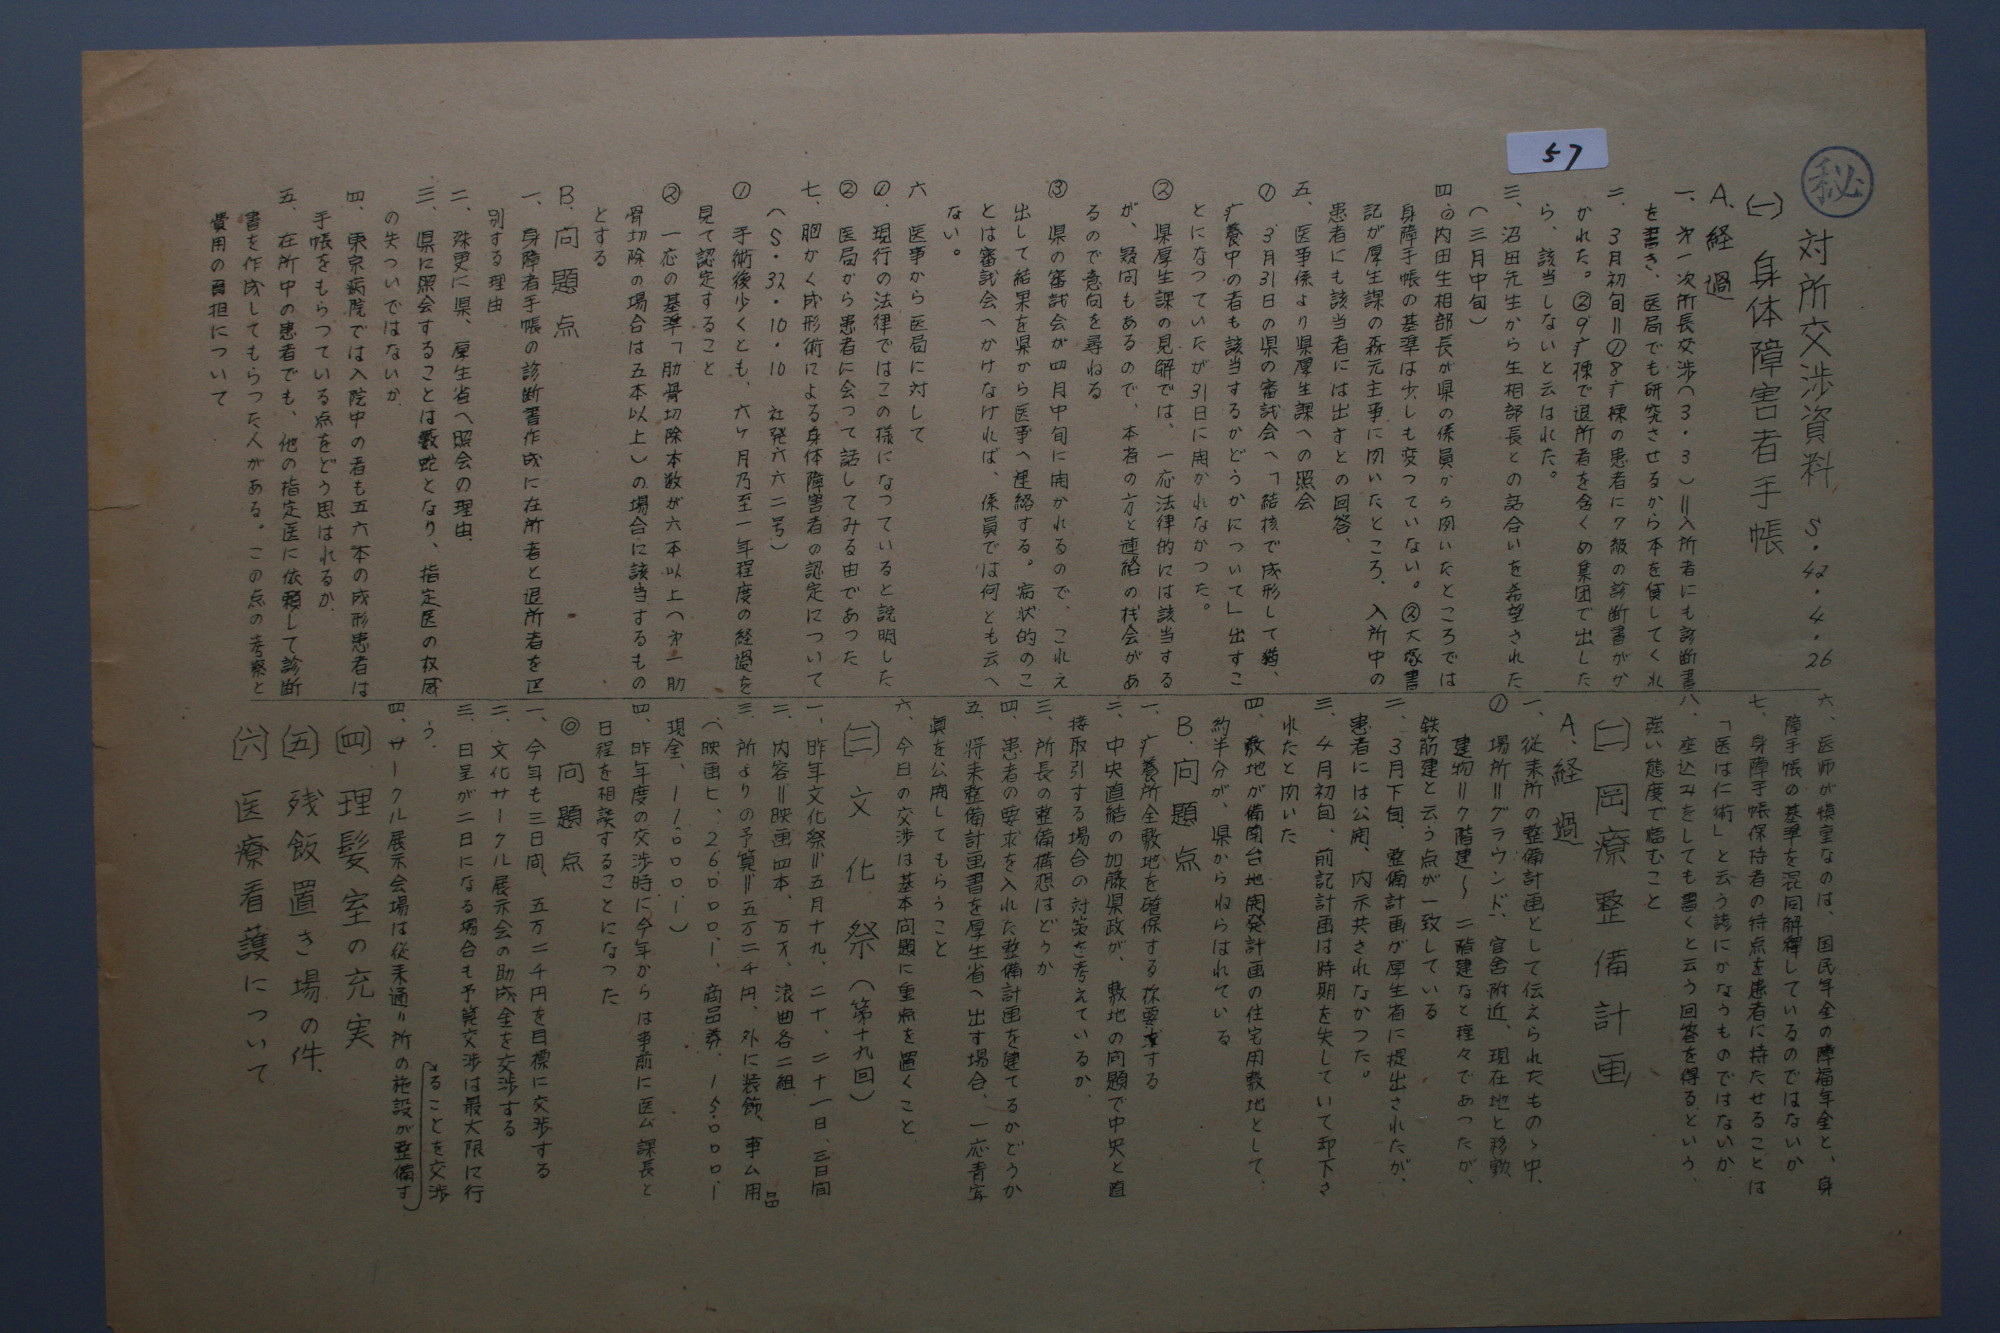 57
㊙
対所交渉資料 S・42・4・26
〔一〕 身体障害者手帳
A、経過
一、才一次所長交渉(3・3)=入所者にも診断書
を書き、医局でも研究させるから本を貸してくれ
二、3月初旬=①8疒棟の患者に7級の診断書がか
かれた。②9疒棟で退所者を含くめ集団で出した
ら、該当しないと云はれた。
三、沼田先生から生相部長との話合いを希望された
(三月中旬)
四、①内田生相部長が県の係員から聞いたところでは
身障手帳の基準は少しも変つていない。②大塚書
記が厚生課の森元主事に聞いたところ、入所中の
患者にも該当者には出すとの回答、
五、医事係より県厚生課への照会
① 3月31日の県の審議会へ「結核で成形して猶、
疒養中の者も該当するかどうかについて」出すこ
とになつていたが31日に開かれなかつた。
② 県厚生課の見解では、一応法律的には該当する
が、疑問もあるので、本省の方と連絡の機会があ
るので意向を尋ねる
③ 県の審議会が四月中旬に開かれるので、これえ
出して結果を県から医事へ連絡する。病状的のこ
とは審議会へかけなければ、係員では何とも云へ
ない。
六 医事から医局に対して
①、現行の法律ではこの様になつていると説明した
② 医局から患者に会つて話してみる由であつた
七、胸かく成形術による身体障害者の認定について
(S・32・10・10 社発六六二号)
① 手術後少くとも、六ケ月乃至一年程度の経過を
見て認定すること
② 一応の基準「肋骨切除本数が六本以上(才一肋
骨切除の場合は五本以上)の場合に該当するもの
とする
B、問題点
一、身障者手帳の診断書作成に在所者と退所者を区
別する理由
二、殊更に県、厚生省へ照会の理由
三、県に照会することは藪蛇となり、指定医の权威
の失ついではないか
四、東京病院では入院中の者も五六本の成形患者は
手帳をもらつている点をどう思はれるか
五、在所中の患者でも、他の指定医に依頼して診断
書を作成してもらつた人がある。この点の考察と
費用の負担について
六、医师が慎重なのは、国民年金の障福年金と、身
障手帳の基準を混同解釋しているのではないか
七、身障手帳保持者の特点を患者に持たせることは
「医は仁術」と云う諺にかなうものではないか
八、座込みをしても書くと云う回答を得るという、
強い態度で臨むこと
〔二〕 岡療整備計画
A、経過
一、従来所の整備計画として伝えられたものゝ中、
① 場所=グラウンド、官舎附近、現在地と移動
建物=7階建〜二階建など種々であつたが、
鉄筋建と云う点が一致している
二、3月下旬、整備計画が厚生省に提出されたが、
患者には公開、内示共されなかつた。
三、4月初旬、前記計画は時期を失していて却下さ
れたと聞いた
四、敷地が備南台地開発計画の住宅用敷地として、
約半分が、県からねらはれている
B、問題点
一、疒養所全敷地を確保する 必要する
二、中央直結の加藤県政が、敷地の問題で中央と直
接取引する場合の対策を考えているか、
三、所長の整備構想はどうか
四、患者の要求を入れた整備計画を建てるかどうか
五、将来整備計画書を厚生省へ出す場合、一応青写
眞を公開してもらうこと
六、今日の交渉は基本問題に重点を置くこと
〔三〕 文化祭(第十九回)
一、昨年文化祭=五月十九、二十、二十一日、三日間
二、内容=映画四本、万才、浪曲各二組
三、所よりの予算=五万二千円、外に装飾、事ム用品
(映画ヒ、26,000ー、商品券、15,000ー
現金、11,000ー)
四、昨年度の交渉時に今年からは事前に医ム課長と
日程を相談することになつた
◎ 問題点
一、今年も三日間、五万二千円を目標に交渉する
二、文化サークル展示会の助成金を交渉する
三、日呈が二日になる場合も予算交渉は最大限に行
う、
四、サークル展示会場は従来通り所の施設が整備す
ることを交渉
〔四〕 理髪室の充実
〔五〕 残飯置き場の件
〔六〕 医療看護について